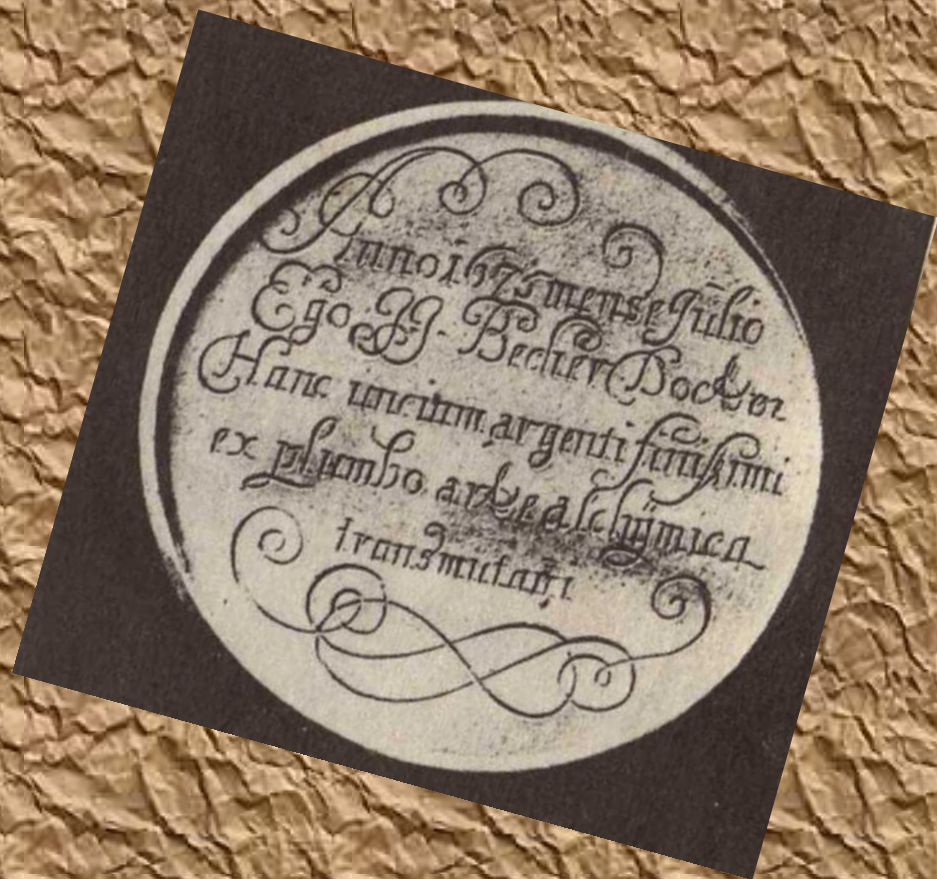 Anno 1675 mense Julio
Ego J.J. Becher Doctor
Hanc unciam argenti finissimi
ex plumbo arte alchymica
transmutavi